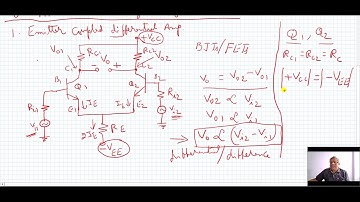 1. Emitter Coupled differential Amp
+Vcc
Vo1
Rc1
Vo
Rc2
Vo2
C1
C2
B1
Q1
Q2
B2
Rs1
E1
IE
IE
E2
Rs2
2IE
RE
-VEE
BJTs/FETs
Vo = Vo2 - Vo1
Vo2 ∝ Vs2
Vo1 ∝ Vs1
Vo ∝ (Vs2 - Vs1)
differential/difference
Q1, Q2
Rc1 = Rc2 = Rc
|+Vcc| = |-VEE|